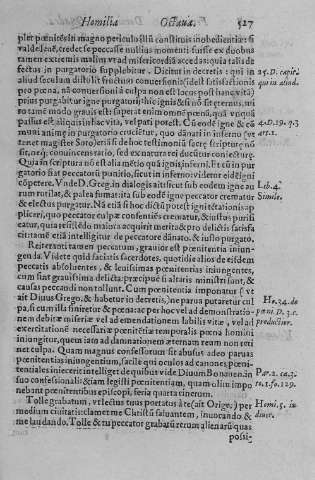 Homilia Octaua. 527
plet pœnitẽs in magno periculo illũ constituis inobedientiæ: si
valdè lenẽ, credet se peccasse nullius momẽti: fuisse ex duobus
tamen extremis malim vt ad misericordiã accedas: quia talis de
fectus in purgatorio supplebitur. Dicitur in decretis: qui in
aliud seculum distulit fructum conuersionis (idest satisfactionis
pro pœna, nã conuersioni à culpa non est locus post hanc vitã)
prius purgabitur igne purgatorij: hic ignis & si nõ sit eternus, mi
ro tamẽ modo grauis est: superat enim omnẽ pœnã, quã vnquã
passus est aliquis in hac vita, vel pati potest. Cũ eodẽ igne & cõ
muni animę in purgatorio crucietur, quo dãnati in inferno (vt
tenet magister Soto) etiã si de hoc testimonium sacrę scripturę nõ
sit, nec consuetudo, sed ex natura rei ducitur coniecturę.
Quia in scriptura nõ est alia mẽtio quã ignis inferni. Et cũ in pur
gatorio fiat peccatorũ punitio, sicut in inferno videtur eidẽ igni
cõpetere. Vnde D. Greg. in dialogis ait: sicut sub eodem igne au
rum rutilat, & palea fumat: ita sub eodẽ igne peccator crematur
& electus purgatur. Nã etiã si hoc dici potest igni tetationis ap
plicari, quo peccator culpæ consentiẽs crematur, & iustus purifi
catur, quia resistẽdo maiora acquirit merita & pro delictis satisfa
cit: tamẽ etiã intelligitur de peccatore dãnato, & iusto purgato.
Reiteranti tamen peccatum, grauior est pœnitentia iniun-
genda. Videte quid faciatis sacerdotes, quotidie alios de eisdem
peccatis absoluentes, & leuissimas pœnitentias iniungentes,
cum sint grauissima delicta: præcipuè si altaris ministri sunt, &
causas peccandi non tollunt. Cum pœnitentia imponatur (vt
ait Diuus Grego. & habetur in decretis,) ne parua putaretur cul
pa, si cum illa finiretur & pœna: ac per hoc vel ad demonstratio-
nem debitæ miseriæ vel ad emendationem labilis vitæ, vel ad
exercitationẽ necessariæ pœnitẽtiæ temporalis pœna homini
iniongitur, quem iam ad damnationem æternam ream non reti
net culpa. Quam magnus confessorum sit abusus adeo paruas
pœnitentias iniungentium, facilè qui oculos ad canones, pœni-
tentiales iniecerit intelliget de quibus vide Diuum Bonauen. in
suo confessionali: & iam legissti pœnitentiam, quam olim impo
nebant pœnitentibus episcopi, feria quarta cinerum.
Tolle grabatum, vt lectus tuus portatus à te (ait Orige.) per
medium ciuitatis: clamet me Christũ saluantem, inuocando &
me laudando. Tolle & tu peccator grabatũ rerum alienarũ quas
possi-
25. D. capit.
qui in aliud.
4. D. 19. q. 3
art. 2.
Lib. 4.
Simile.
Ho. 34. de
pœni. D. 3. c.
produciur.
Par. 2. ca. 3.
to. 1. fo. 129.
Homi. 5. in
diuer.